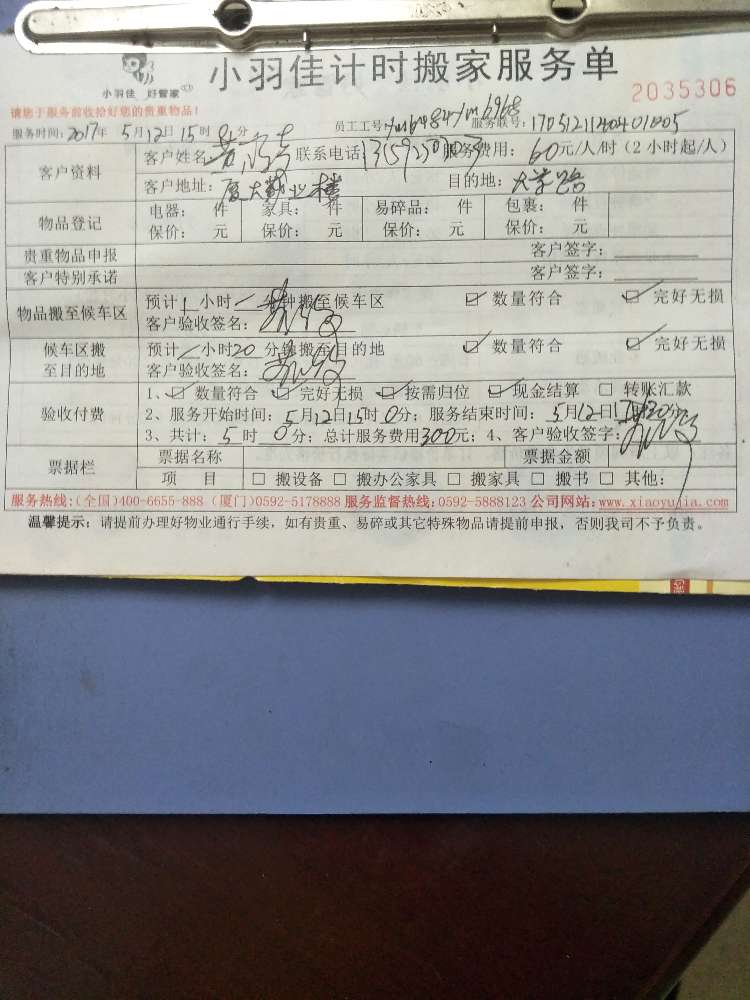 小羽佳 好管家
小羽佳计时搬家服务单
2035306
请您于服务前收拾好您的贵重物品！
服务时间：2017年 5月12日15时 分 员工工号： 服务联号：
客户资料
客户姓名： 联系电话 服务费用： 60元/人/时（2小时起/人）
客户地址： 目的地：大学路
物品登记
电器： 件 家具： 件 易碎品： 件 包裹： 件
保价： 元 保价： 元 保价： 元 保价： 元
贵重物品申报 客户签字：
客户特别承诺 客户签字：
物品搬至候车区
预计1小时 分钟搬至候车区 ☑ 数量符合 ☑ 完好无损
客户验收签名：
候车区搬至目的地
预计 小时20分钟搬至目的地 ☑ 数量符合 ☑ 完好无损
客户验收签名：
验收付费
1、☑ 数量符合 ☑ 完好无损 ☑ 按需归位 ☑ 现金结算 □ 转账汇款
2、服务开始时间：5月12日15时0分；服务结束时间：5月12日17时30分
3、共计：5时0分；总计服务费用300元；4、客户验收签字：
票据栏
票据名称 票据金额
项 目 □ 搬设备 □ 搬办公家具 □ 搬家具 □ 搬书 □ 其他：
服务热线：(全国)400-6655-888 (厦门)0592-5178888 服务监督热线：0592-5888123 公司网站：www.xiaoyujia.com
温馨提示：请提前办理好物业通行手续，如有贵重、易碎或其它特殊物品请提前申报，否则我司不予负责。